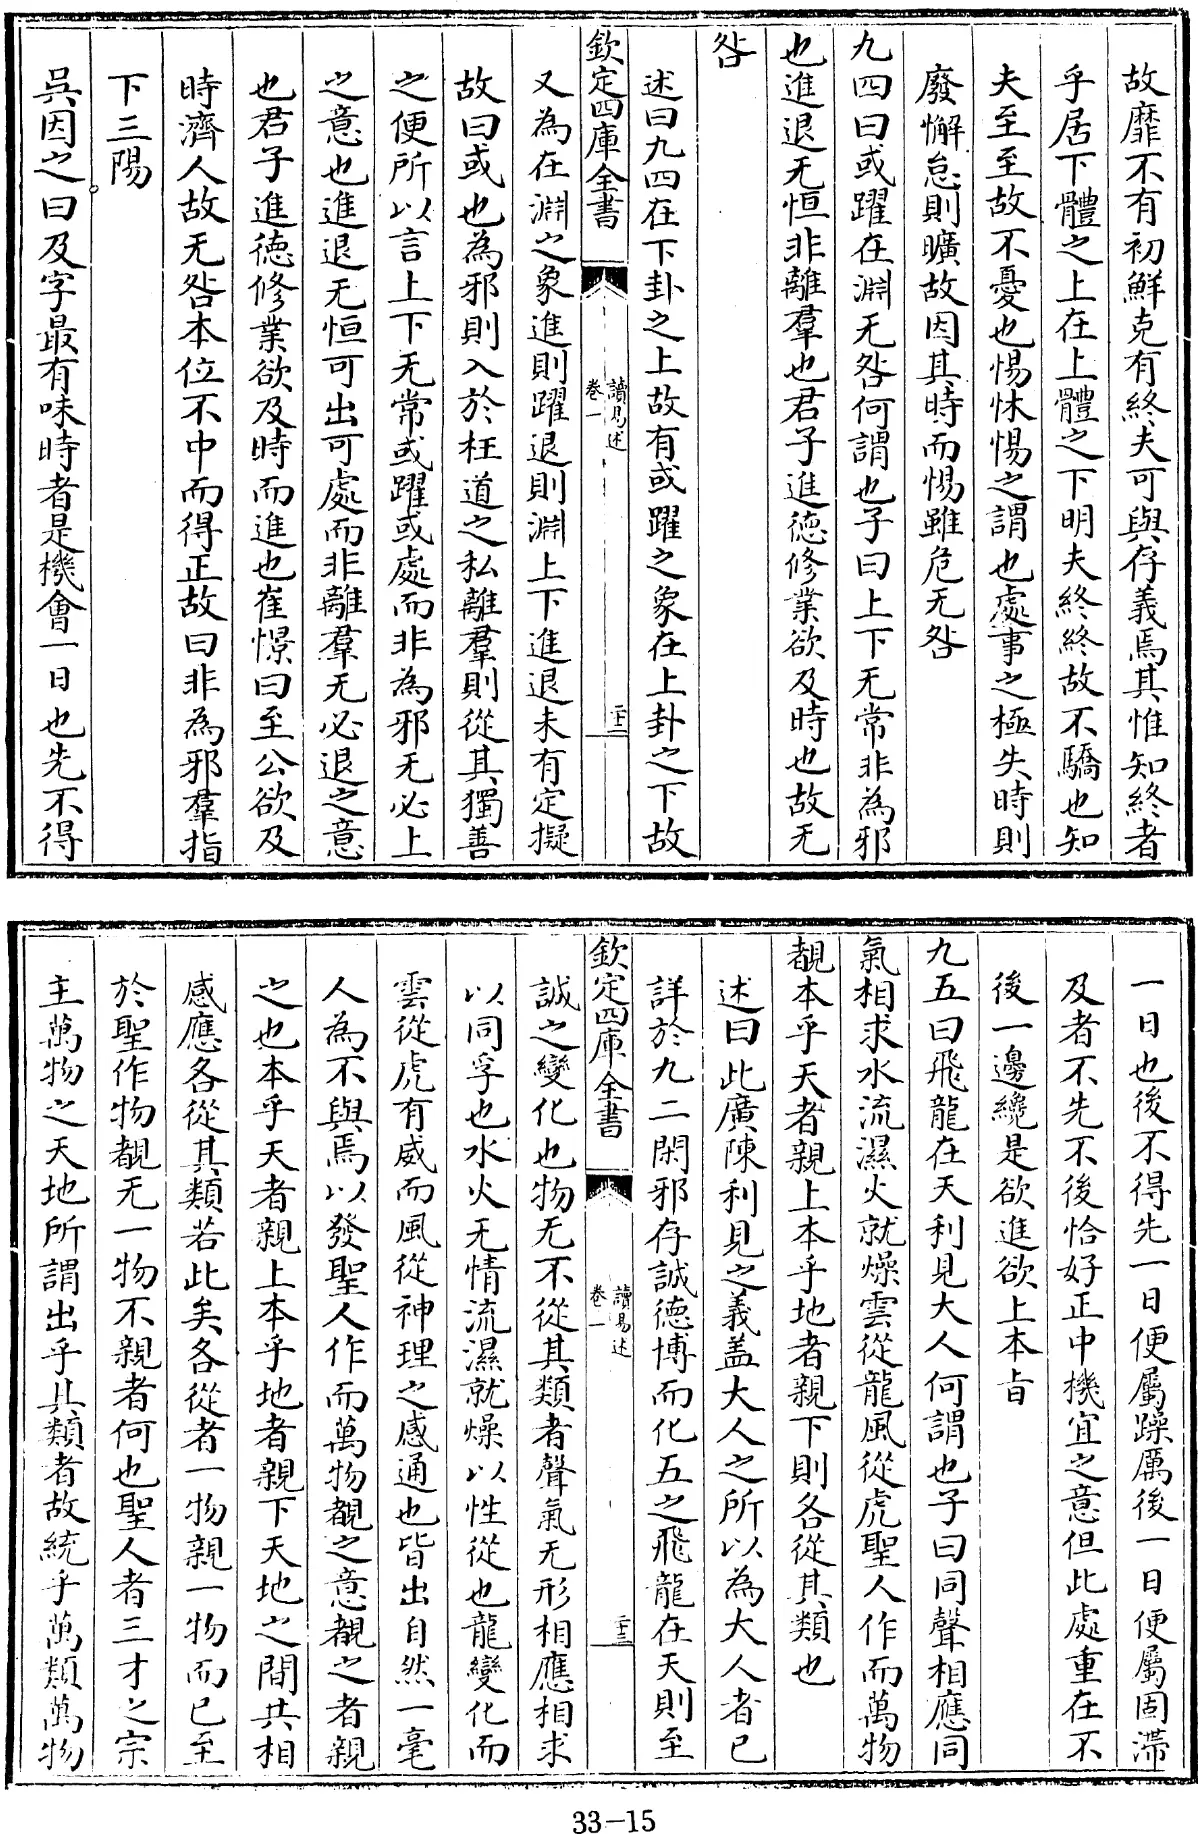 故靡不有初鮮克有終夫可與存義焉其惟知終者
乎居下體之上在上體之下明夫終終故不驕也知
夫至至故不憂也惕怵惕之謂也處事之極失時則
廢懈怠則曠故因其時而惕雖危无咎
九四曰或躍在淵无咎何謂也子曰上下无常非為邪
也進退无恒非離羣也君子進徳修業欲及時也故无
咎
述曰九四在下卦之上故有或躍之象在上卦之下故
欽定四庫全書
讀易述
卷一
二十二
又為在淵之象進則躍退則淵上下進退未有定擬
故曰或也為邪則入於枉道之私離羣則從其獨善
之便所以言上下无常或躍或處而非為邪无必上
之意也進退无恒可出可處而非離羣无必退之意
也君子進徳修業欲及時而進也崔憬曰至公欲及
時濟人故无咎本位不中而得正故曰非為邪羣指
下三陽
吳因之曰及字最有味時者是機會一日也先不得
一日也後不得先一日便屬躁厲後一日便屬固滯
及者不先不後恰好正中機宜之意但此處重在不
後一邊纔是欲進欲上本旨
九五曰飛龍在天利見大人何謂也子曰同聲相應同
氣相求水流濕火就燥雲從龍風從虎聖人作而萬物
覩本乎天者親上本乎地者親下則各從其類也
述曰此廣陳利見之義盖大人之所以為大人者已
詳於九二閑邪存誠德博而化五之飛龍在天則至
欽定四庫全書
讀易述
卷一
二十三
誠之變化也物无不從其類者聲氣无形相應相求
以同孚也水火无情流濕就燥以性從也龍變化而
雲從虎有威而風從神理之感通也皆出自然一毫
人為不與焉以發聖人作而萬物覩之意覩之者親
之也本乎天者親上本乎地者親下天地之間共相
感應各從其類若此矣各從者一物親一物而已至
於聖作物覩无一物不親者何也聖人者三才之宗
主萬物之天地所謂出乎其類者故統乎萬類萬物
33-15